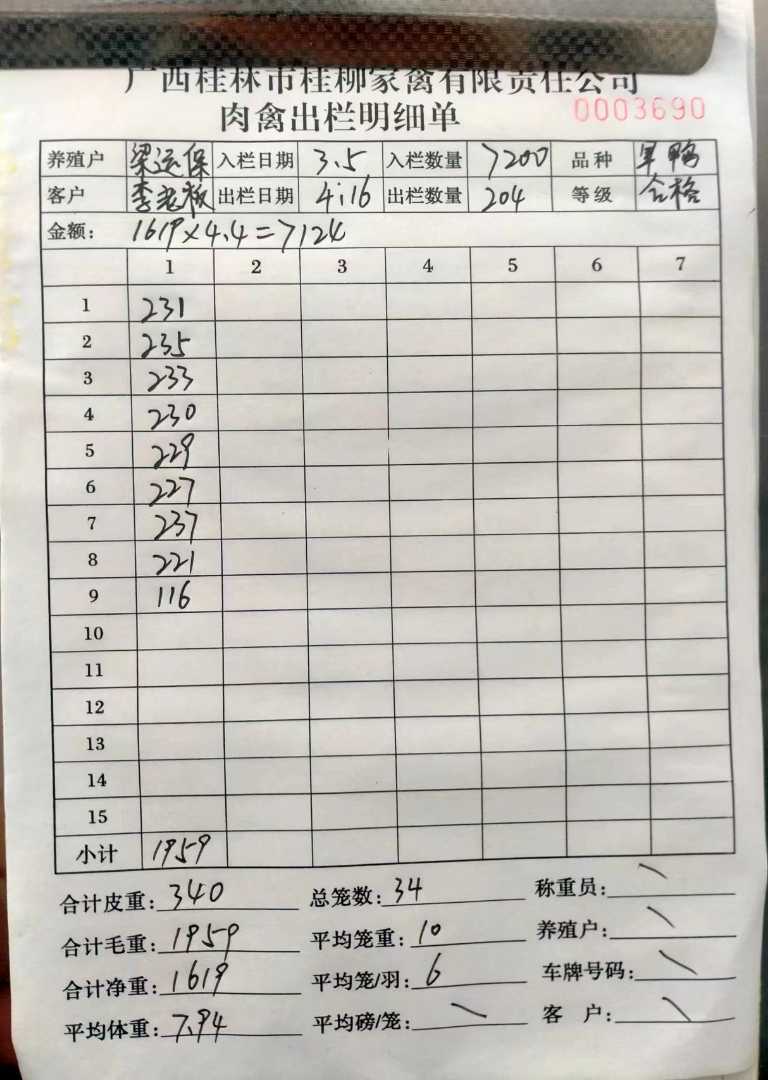 广西桂林市桂柳家禽有限责任公司
肉禽出栏明细单 0003690
养殖户 梁运保 入栏日期 3.5 入栏数量 7200 品种 旱鸭
客户 李老板 出栏日期 4.16 出栏数量 204 等级 合格
金额: 1619×4.4=7124
1 2 3 4 5 6 7
1 231
2 235
3 233
4 230
5 229
6 227
7 237
8 221
9 116
10
11
12
13
14
15
小计 1959
合计皮重: 340 总笼数: 34 称重员: \
合计毛重: 1959 平均笼重: 10 养殖户: \
合计净重: 1619 平均笼/羽: 6 车牌号码: \
平均体重: 7.94 平均磅/笼: \ 客 户: \